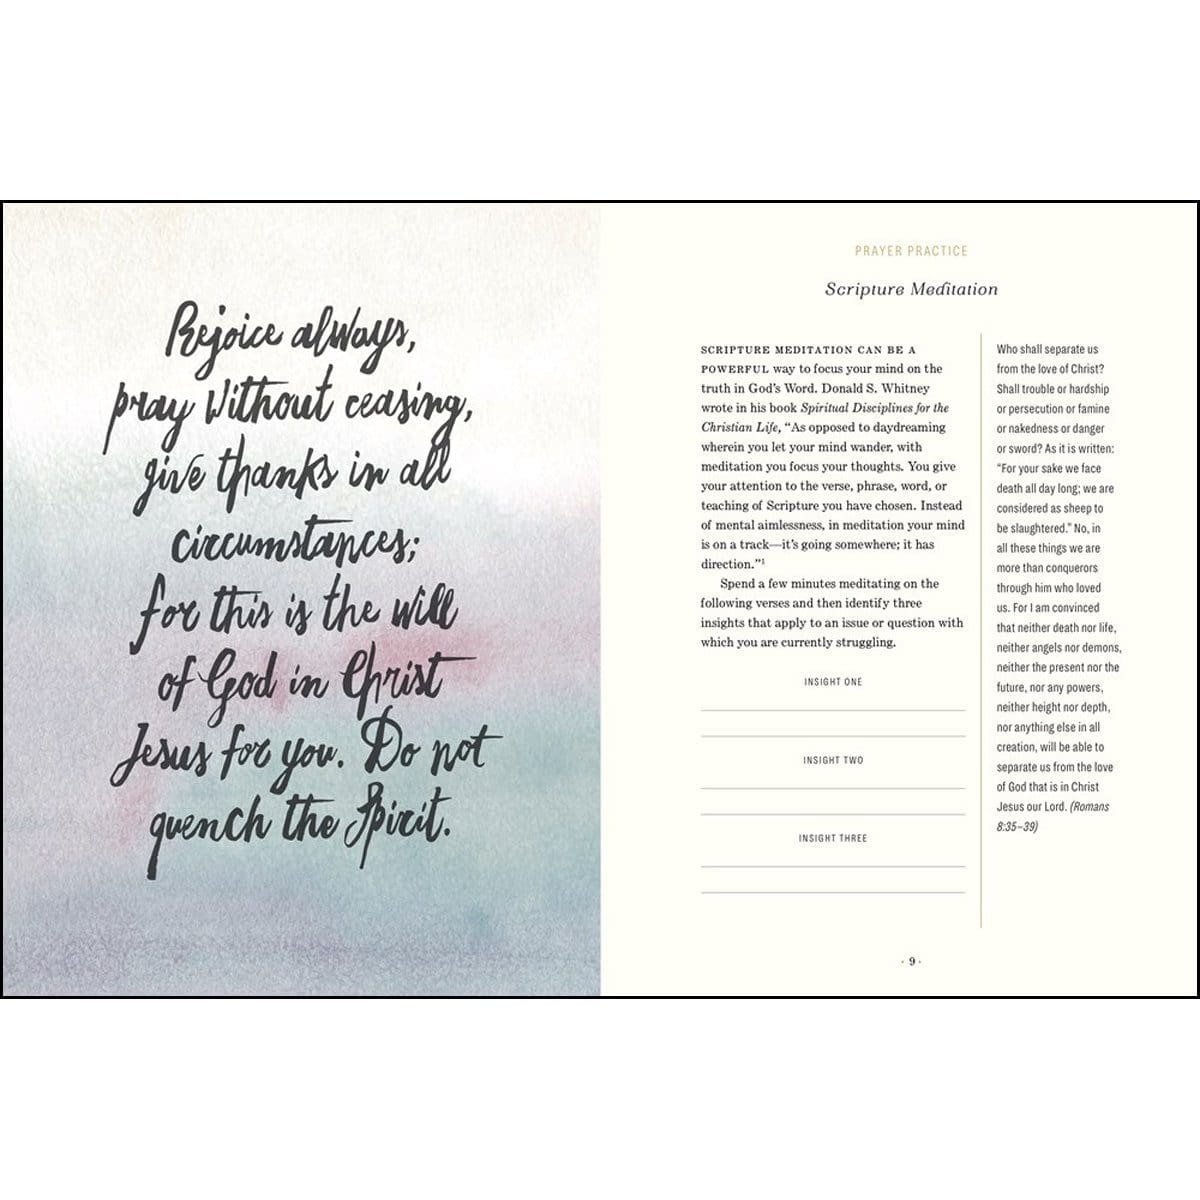 Rejoice always,
pray without ceasing,
give thanks in all
circumstances;
for this is the will
of God in Christ
Jesus for you. Do not
quench the Spirit.
PRAYER PRACTICE
Scripture Meditation
SCRIPTURE MEDITATION CAN BE A
POWERFUL way to focus your mind on the
truth in God's Word. Donald S. Whitney
wrote in his book Spiritual Disciplines for the
Christian Life, “As opposed to daydreaming
wherein you let your mind wander, with
meditation you focus your thoughts. You give
your attention to the verse, phrase, word, or
teaching of Scripture you have chosen. Instead
of mental aimlessness, in meditation your mind
is on a track—it's going somewhere; it has
direction.”¹
Spend a few minutes meditating on the
following verses and then identify three
insights that apply to an issue or question with
which you are currently struggling.
INSIGHT ONE
INSIGHT TWO
INSIGHT THREE
Who shall separate us
from the love of Christ?
Shall trouble or hardship
or persecution or famine
or nakedness or danger
or sword? As it is written:
“For your sake we face
death all day long; we are
considered as sheep to
be slaughtered.” No, in
all these things we are
more than conquerors
through him who loved
us. For I am convinced
that neither death nor life,
neither angels nor demons,
neither the present nor the
future, nor any powers,
neither height nor depth,
nor anything else in all
creation, will be able to
separate us from the love
of God that is in Christ
Jesus our Lord. (Romans
8:35–39)
· 9 ·